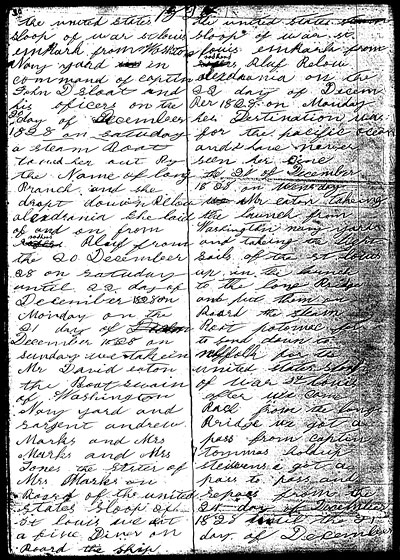 1828
the united states
sloop of war st louis
embark from Washton
Navy yard in
command of captin
John D Sloat and
his oficers on the
20 Day of December
1828 on saturday
a steam Boat
towed her out By
the Name of long
Branch and she
dropt down Below
alexdrania she laid
of and on from
Bluf from
the 20 December
28 on saturday
until 22 day of
December 1828 on
Monday on the
21 day of
December 1828 on
sunday we taken in
Mr David eaton
the Boatswain
of Washington
Navy yard and
sargent andrew
Marks and Mrs
Marks and Mrs
Jones the sister of
Mrs Marks on
Board of the united
states sloop of
St louis we got
a fine Diner on
Board the ship
the united states
sloop of war st
louis embark from
Bluf Below
alexdrania on the
22 day of Decem
Ber 1828 on Monday
her Destination was
for the pacific ocean
and I have never
seen her sine
the 21 of December
1828 on
Mr eaton taking
the launch from
Washington navy yard
and taking the
sails of the st louis
up in the launch
to the long Bridge
and put them on
Board the steam
Boat potomac
to send down to
Norfolk for the
united states sloop
of war St louis
after we com
Back from the long
Bridge we got a
pass from captin
tommas holdup
stevens e got a
pass to pass and
repass from the
21 day of December
1828 until the 31
day of December